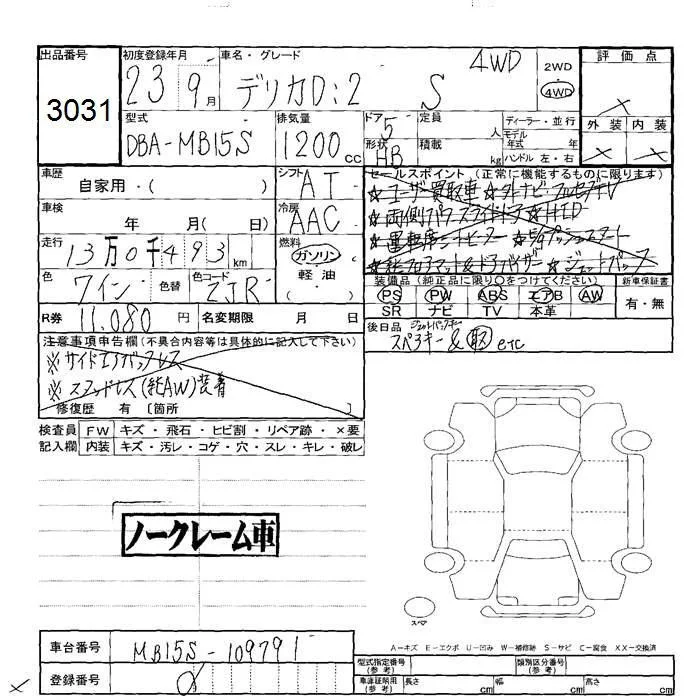 出品番号
3031
初度登録年月
23 9月
車名・グレード
デリカD:2 S 4WD
2WD
4WD
評価点
外装 内装
型式
DBA-MB15S
排気量
1200cc
ドア
5
形状
HB
定員
人
積載
kg
ディーラー・並行
モデル
年式 年
ハンドル 左・右
車歴
自家用・( )
シフト
AT
セールスポイント (正常に機能するものに限ります)
☆ユーザー買取車
☆両側パワースライドドア ☆HID
車検
年 月( 日)
冷房
AAC
走行
13万0千493km
燃料
ガソリン
軽油
( )
色
ワイン
色替
色コード
ZJR
装備品(純正品に限り○をつけてください)
PS PW ABS エアB AW
SR ナビ TV 本革
新車保証書
有・無
R券
11,080円
名変期限 月 日
後日品
スペアキー & 取 etc
注意事項申告欄(不具合内容等は具体的に記入して下さい)
※サイドエアバックレス
※スタッドレス(純AW)装着
修復歴 有 [箇所 ]
検査員
記入欄
FW キズ・飛石・ヒビ割・リペア跡・×要
内装 キズ・汚レ・コゲ・穴・スレ・キレ・破レ
ノークレーム車
スペア
A-キズ E-エクボ U-凹み W-補修跡 S-サビ C-腐食 XX-交換済
車台番号
MB15S-109791
登録番号
型式指定番号
(参考)
類別区分番号
(参考)
車庫証明用
(参考)
長さ cm
幅 cm
高さ cm